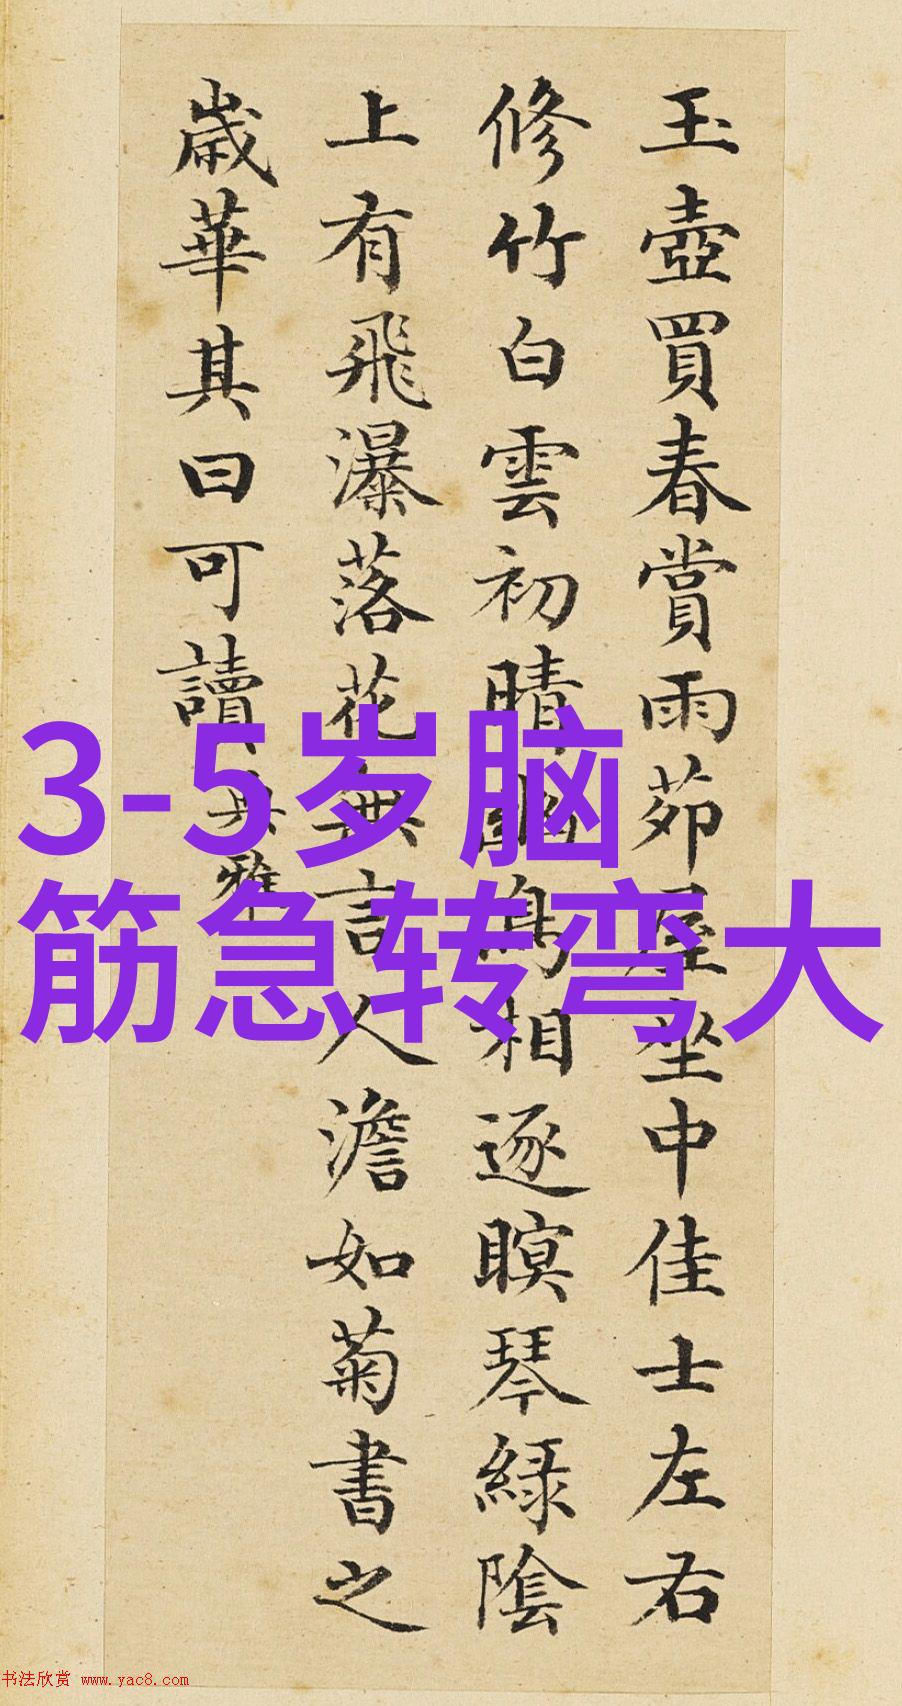 玉壺買春賞雨茆屋坐中佳士左右
修竹白雲初晴幽鳥相逐瞑琴緑陰
上有飛瀑落花無言人澹如菊書之
歲華其曰可讀 典雅
3-5岁脑
筋急转弯大
书法欣赏 www.yac8.com